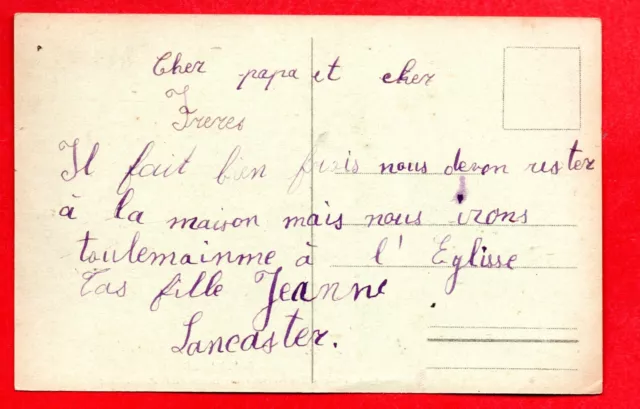 Cher papa et cher
Freres
Il fait bien frais nous devon rester
à la maison mais nous irons
toulemainme à l' Eglisse
Tas fille Jeanne
Lancaster.